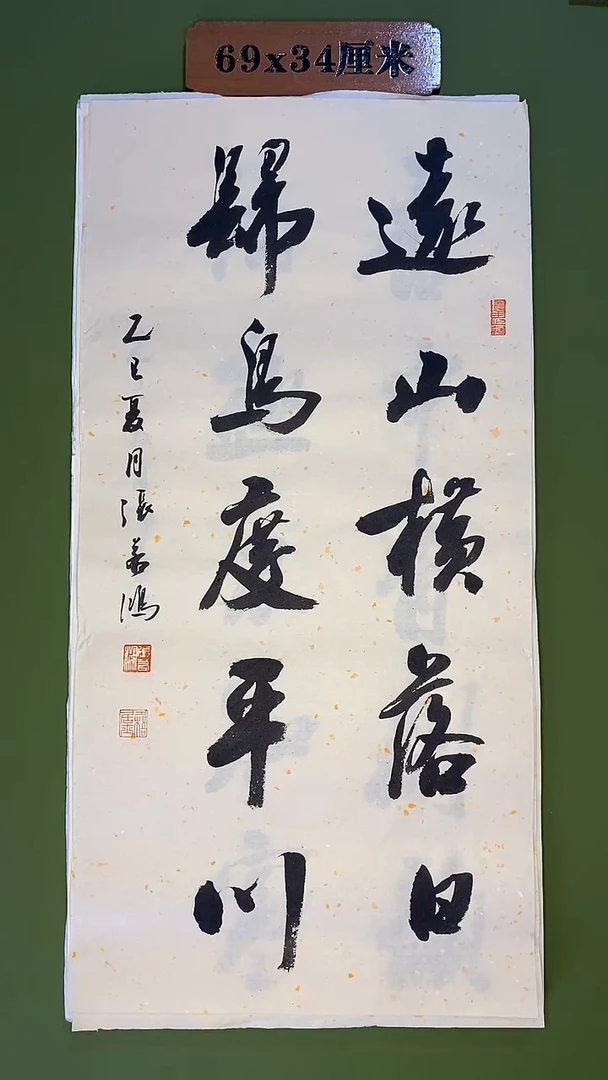 69x34厘米
遠山橫落日
歸鳥度平川
乙巳夏月張若鴻